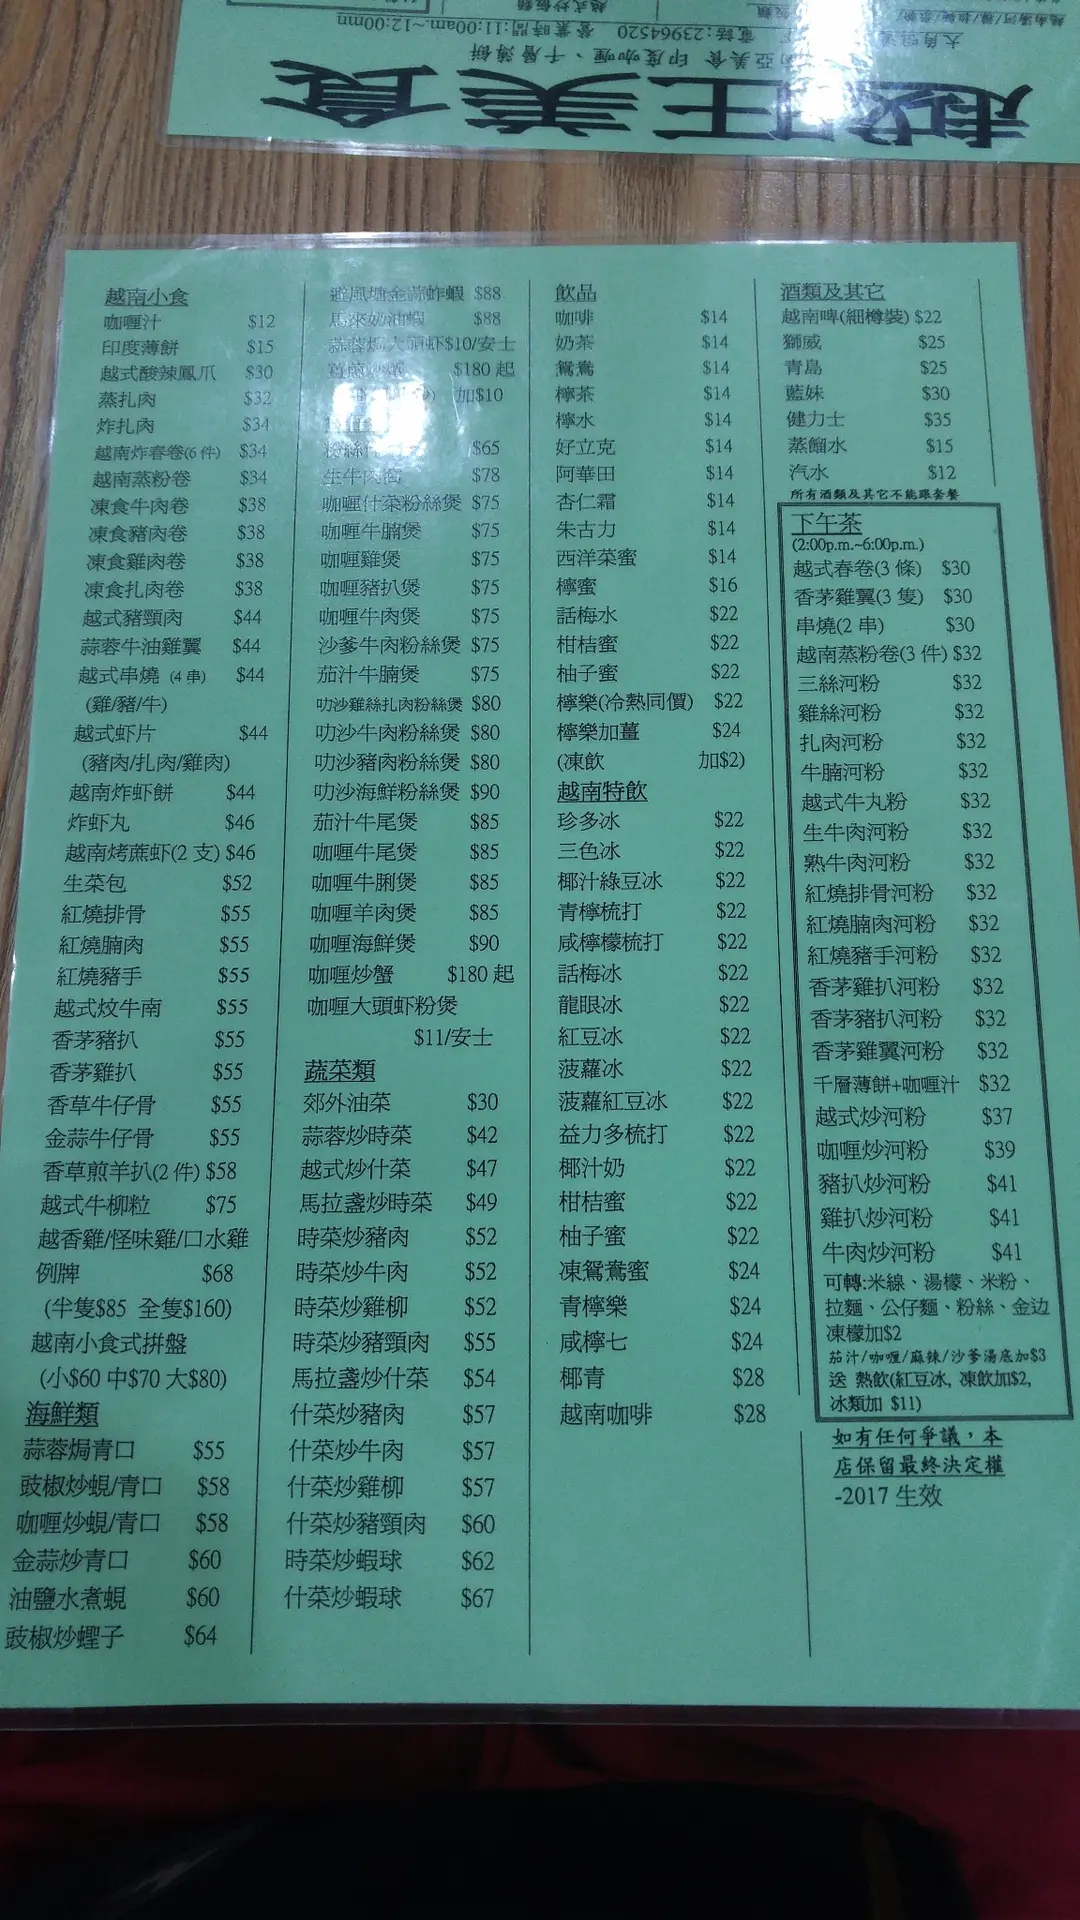 越王美食
亞美食 印度咖喱、千層薄餅
電話:23964520 營業時間:11:00am.~12:00mn
越南小食
咖喱汁 $12
印度薄餅 $15
越式酸辣鳳爪 $30
蒸扎肉 $32
炸扎肉 $34
越南炸春卷(6 件) $34
越南蒸粉卷 $34
凍食牛肉卷 $38
凍食豬肉卷 $38
凍食雞肉卷 $38
凍食扎肉卷 $38
越式豬頸肉 $44
蒜蓉牛油雞翼 $44
越式串燒 (4 串) $44
(雞/豬/牛)
越式虾片 $44
(豬肉/扎肉/雞肉)
越南炸虾餅 $44
炸虾丸 $46
越南烤蔗虾(2 支) $46
生菜包 $52
紅燒排骨 $55
紅燒腩肉 $55
紅燒豬手 $55
越式炆牛南 $55
香茅豬扒 $55
香茅雞扒 $55
香草牛仔骨 $55
金蒜牛仔骨 $55
香草煎羊扒(2 件) $58
越式牛柳粒 $75
越香雞/怪味雞/口水雞
例牌 $68
(半隻$85 全隻$160)
越南小食式拼盤
(小$60 中$70 大$80)
海鮮類
蒜蓉焗青口 $55
豉椒炒蜆/青口 $58
咖喱炒蜆/青口 $58
金蒜炒青口 $60
油鹽水煮蜆 $60
豉椒炒蟶子 $64
避風塘金蒜炸蝦 $88
馬來奶油蝦 $88
蒜蓉焗大頭虾$10/安士
$180 起
加$10
$65
生牛肉窩 $78
咖喱什菜粉絲煲 $75
咖喱牛腩煲 $75
咖喱雞煲 $75
咖喱豬扒煲 $75
咖喱牛肉煲 $75
沙爹牛肉粉絲煲 $75
茄汁牛腩煲 $75
叻沙雞絲扎肉粉絲煲 $80
叻沙牛肉粉絲煲 $80
叻沙豬肉粉絲煲 $80
叻沙海鮮粉絲煲 $90
茄汁牛尾煲 $85
咖喱牛尾煲 $85
咖喱牛脷煲 $85
咖喱羊肉煲 $85
咖喱海鮮煲 $90
咖喱炒蟹 $180 起
咖喱大頭虾粉煲
$11/安士
蔬菜類
郊外油菜 $30
蒜蓉炒時菜 $42
越式炒什菜 $47
馬拉盞炒時菜 $49
時菜炒豬肉 $52
時菜炒牛肉 $52
時菜炒雞柳 $52
時菜炒豬頸肉 $55
馬拉盞炒什菜 $54
什菜炒豬肉 $57
什菜炒牛肉 $57
什菜炒雞柳 $57
什菜炒豬頸肉 $60
時菜炒蝦球 $62
什菜炒蝦球 $67
飲品
咖啡 $14
奶茶 $14
鴛鴦 $14
檸茶 $14
檸水 $14
好立克 $14
阿華田 $14
杏仁霜 $14
朱古力 $14
西洋菜蜜 $14
檸蜜 $16
話梅水 $22
柑桔蜜 $22
柚子蜜 $22
檸樂(冷熱同價) $22
檸樂加薑 $24
(凍飲 加$2)
越南特飲
珍多冰 $22
三色冰 $22
椰汁綠豆冰 $22
青檸梳打 $22
咸檸檬梳打 $22
話梅冰 $22
龍眼冰 $22
紅豆冰 $22
菠蘿冰 $22
菠蘿紅豆冰 $22
益力多梳打 $22
椰汁奶 $22
柑桔蜜 $22
柚子蜜 $22
凍鴛鴦蜜 $24
青檸樂 $24
咸檸七 $24
椰青 $28
越南咖啡 $28
酒類及其它
越南啤(細樽裝) $22
獅威 $25
青島 $25
藍妹 $30
健力士 $35
蒸餾水 $15
汽水 $12
所有酒類及其它不能跟套餐
下午茶
(2:00p.m.~6:00p.m.)
越式春卷(3 條) $30
香茅雞翼(3 隻) $30
串燒(2 串) $30
越南蒸粉卷(3 件) $32
三絲河粉 $32
雞絲河粉 $32
扎肉河粉 $32
牛腩河粉 $32
越式牛丸粉 $32
生牛肉河粉 $32
熟牛肉河粉 $32
紅燒排骨河粉 $32
紅燒腩肉河粉 $32
紅燒豬手河粉 $32
香茅雞扒河粉 $32
香茅豬扒河粉 $32
香茅雞翼河粉 $32
千層薄餅+咖喱汁 $32
越式炒河粉 $37
咖喱炒河粉 $39
豬扒炒河粉 $41
雞扒炒河粉 $41
牛肉炒河粉 $41
可轉:米線、湯檬、米粉、
拉麵、公仔麵、粉絲、金边
凍檬加$2
茄汁/咖喱/麻辣/沙爹湯底加$3
送 熱飲(紅豆冰, 凍飲加$2,
冰類加 $11)
如有任何爭議，本
店保留最終決定權
-2017 生效